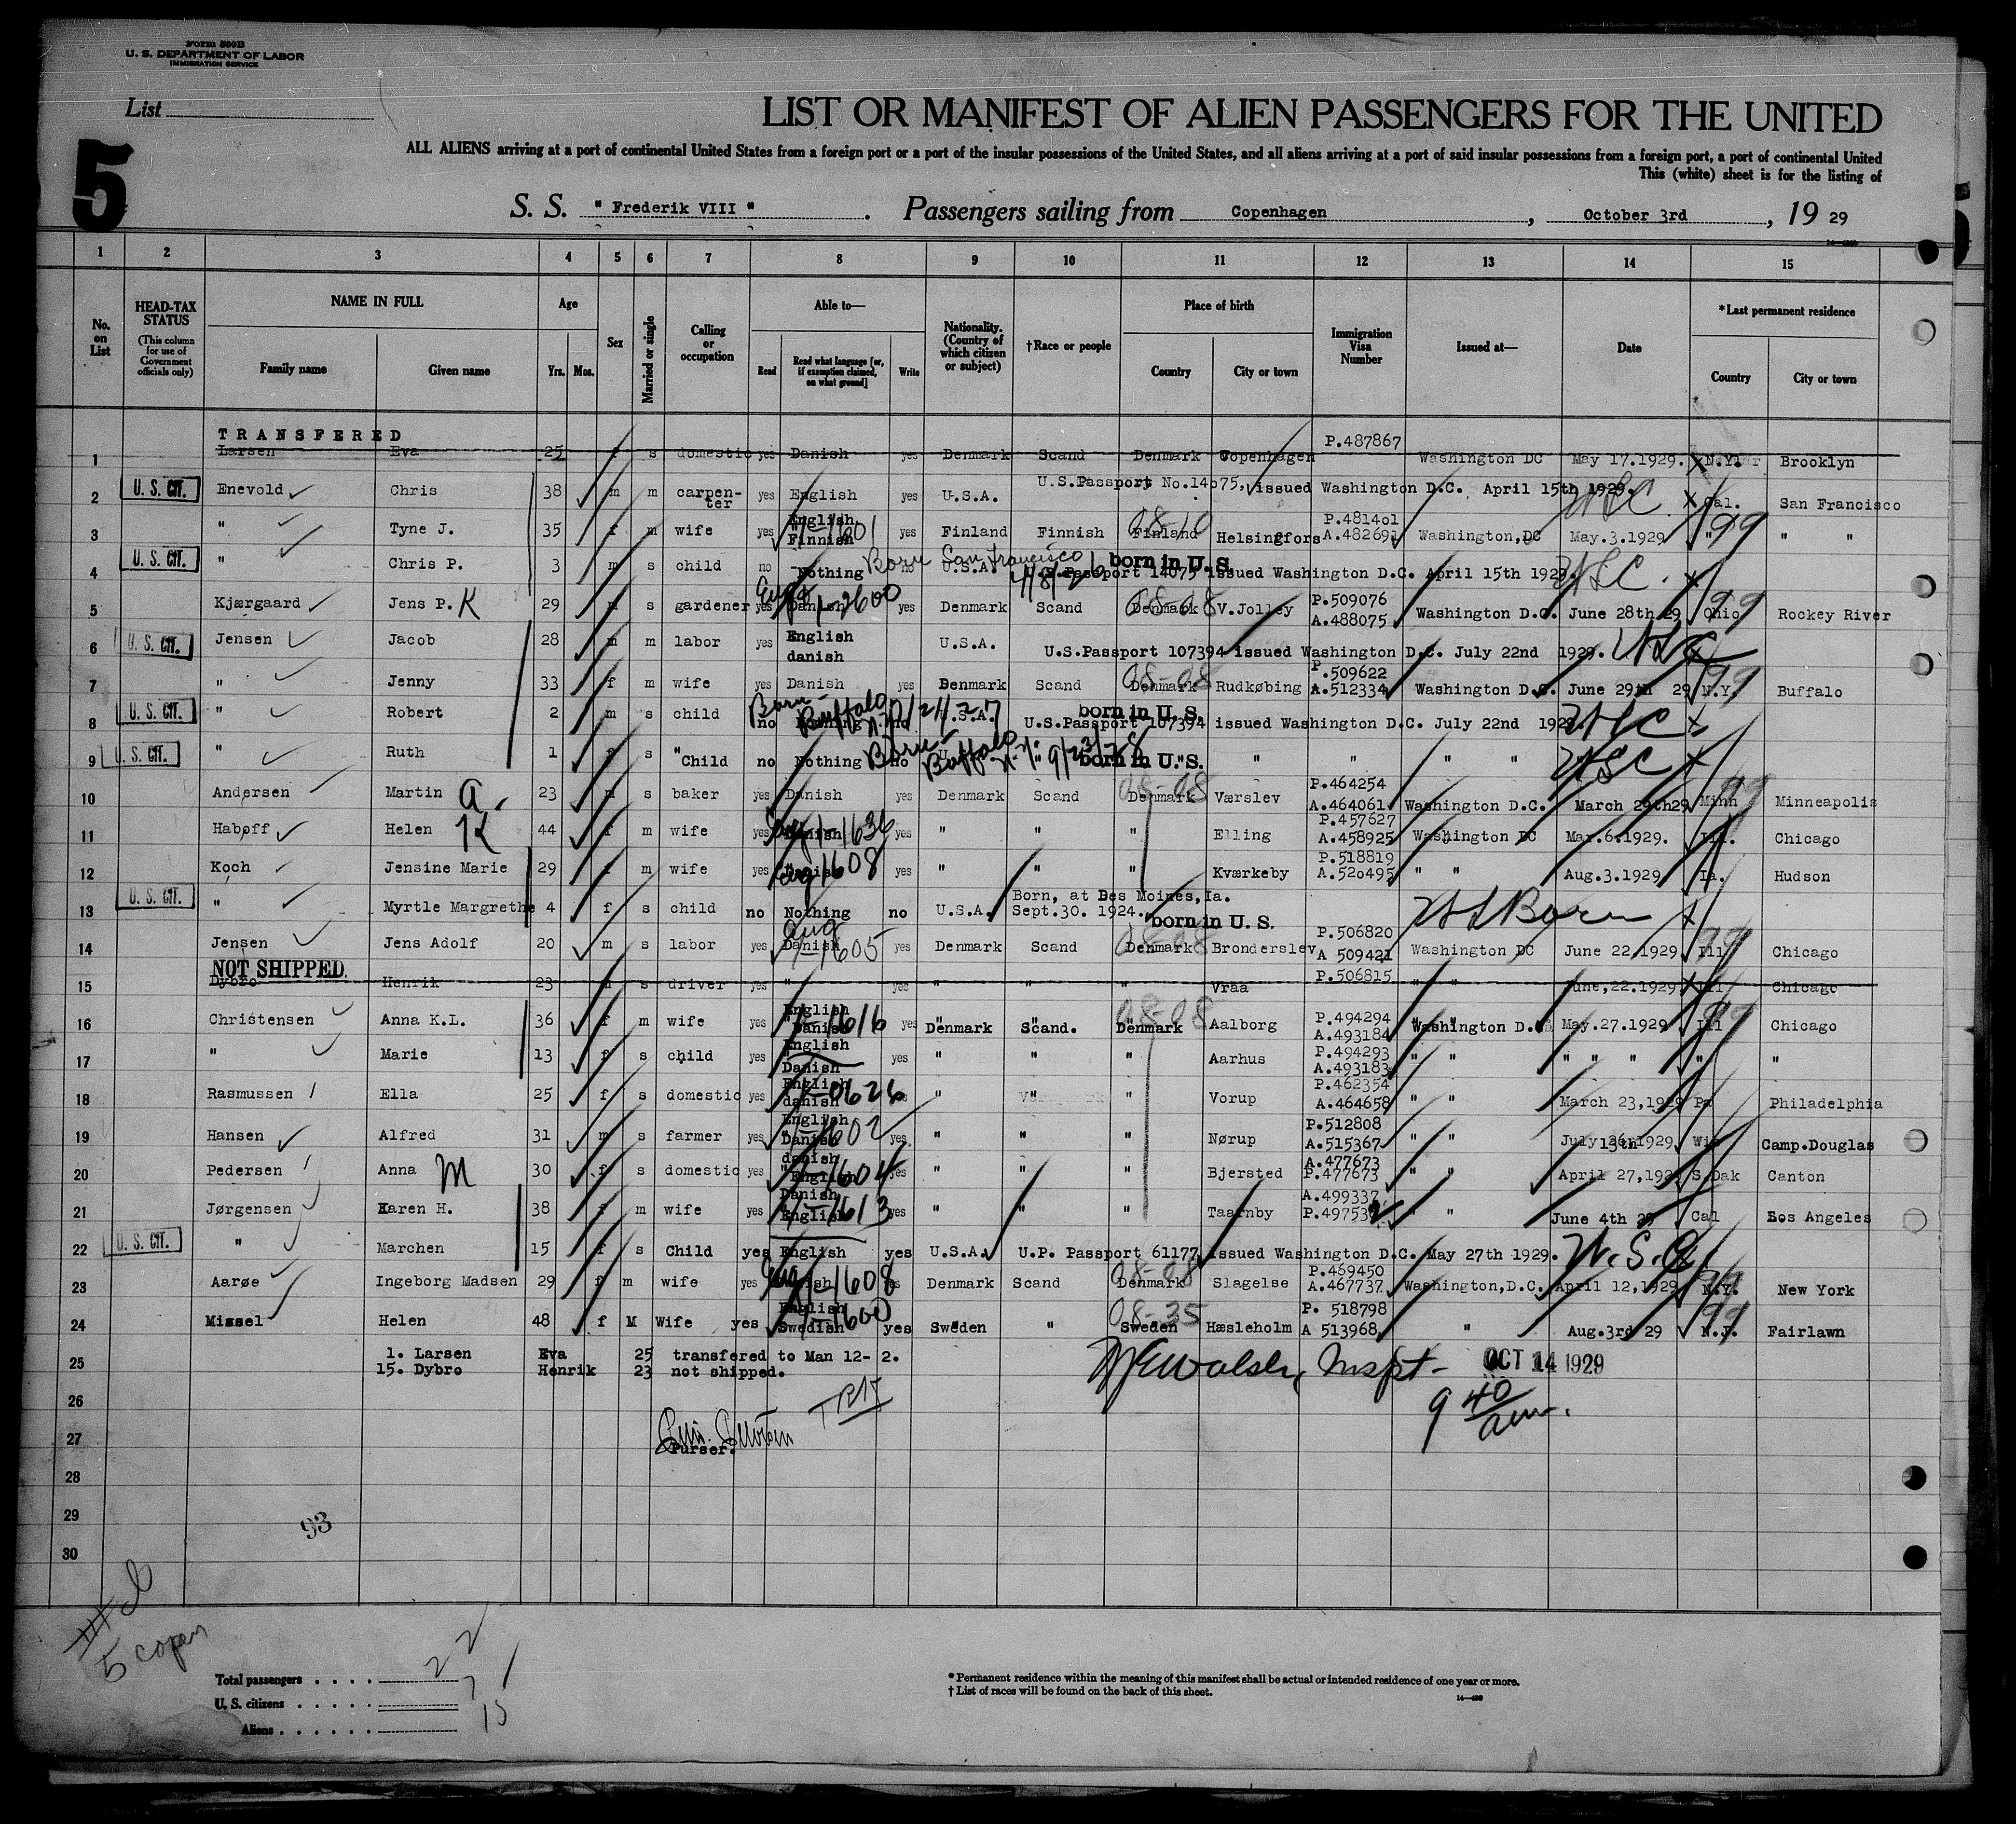 Form 500B
U. S. DEPARTMENT OF LABOR
IMMIGRATION SERVICE
List
5
LIST OR MANIFEST OF ALIEN PASSENGERS FOR THE UNITED
ALL ALIENS arriving at a port of continental United States from a foreign port or a port of the insular possessions of the United States, and all aliens arriving at a port of said insular possessions from a foreign port, a port of continental United
This (white) sheet is for the listing of
S. S. " Frederik VIII " . Passengers sailing from Copenhagen , October 3rd , 19 29
1 2 3 4 5 6 7 8 9 10 11 12 13 14 15
No. on List
HEAD-TAX STATUS
(This column for use of Government officials only)
NAME IN FULL
Family name Given name
Age
Yrs. Mos.
Sex
Married or single
Calling or occupation
Able to—
Read Read what language [or, if exemption claimed, on what ground] Write
Nationality. (Country of which citizen or subject)
†Race or people
Place of birth
Country City or town
Immigration Visa Number
Issued at—
Date
*Last permanent residence
Country City or town
TRANSFERED
1 Larsen Eva 25 f s domestic yes Danish yes Denmark Scand Denmark Copenhagen P.487867 Washington DC May 17.1929. N.Y. Brooklyn
2 U. S. CIT. Enevold Chris 38 m m carpenter yes English yes U.S.A. U.S.Passport No.14075, issued Washington D.C. April 15th 1929. Cal. San Francisco
3 " Tyne J. 35 f m wife yes English Finnish yes Finland Finnish Finland Helsingfors P.481401 A.482691 Washington,DC May.3.1929 " " "
4 U. S. CIT. " Chris P. 3 m s child no Nothing no U.S.A. Born San Francisco 4/8/26 born in U. S. U.S.Passport 14075 issued Washington D.C. April 15th 1929.
5 Kjærgaard Jens P. K 29 m s gardener yes Danish yes Denmark Scand Denmark V.Jolley P.509076 A.488075 Washington D.C. June 28th 29 Ohio Rockey River
6 U. S. CIT. Jensen Jacob 28 m m labor yes English danish U.S.A. U.S.Passport 107394 issued Washington D.C. July 22nd 1929.
7 " Jenny 33 f m wife yes Danish yes Denmark Scand Denmark Rudkøbing P.509622 A.512334 Washington D.C. June 29th 29 N.Y. Buffalo
8 U. S. CIT. " Robert 2 m s child no Nothing no Born Buffalo U.S.A. born in U. S. U.S.Passport 107394 issued Washington D.C. July 22nd 1929
9 U. S. CIT. " Ruth 1 f s "Child no Nothing no Born Buffalo N.Y. 9/23/28 born in U.S. " " " " "
10 Andersen Martin A. 23 m s baker yes Danish yes Denmark Scand Denmark Værslev P.464254 A.464061 Washington D.C. March 29th29 Minn Minneapolis
11 Habøff Helen K 44 f m wife yes Danish yes " " " Elling P.457627 A.458925 Washington DC Mar.6.1929. Ill. Chicago
12 Koch Jensine Marie 29 f m wife yes Danish yes " " " Kværkeby P.518819 A.520495 " " Aug.3.1929 Ia. Hudson
13 U. S. CIT. " Myrtle Margrethe 4 f s child no Nothing no U.S.A. Born, at Des Moines,Ia. Sept.30. 1924. born in U. S.
14 Jensen Jens Adolf 20 m s labor yes Danish yes Denmark Scand Denmark Bronderslev P.506820 A 509421 Washington DC June 22,1929 Ill Chicago
NOT SHIPPED.
15 Dybro Henrik 23 m s driver yes " yes " " " Vraa P.506815 " " June,22.1929 Ill Chicago
16 Christensen Anna K.L. 36 f m wife yes English Danish yes Denmark Scand. Denmark Aalborg P.494294 A.493184 Washington D.C. May.27.1929 Ill Chicago
17 " Marie 13 f s child yes English Danish yes " " " Aarhus P.494293 A.493183 " " " " " " "
18 Rasmussen Ella 25 f s domestic yes English danish yes " " Vorup P.462354 A.464658 " " March 23,1929 Pa Philadelphia
19 Hansen Alfred 31 m s farmer yes English Danish yes " " " Nørup P.512808 A.515367 " " July 1929 Wis Camp.Douglas
20 Pedersen Anna M 30 f s domestic yes danish English yes " " " Bjersted A.477673 P.477673 " " April 27,1929 S.Dak Canton
21 Jørgensen Karen H. 38 f m wife yes Danish English yes " " " Taarnby A.499337 " " June 4th 29 Cal Los Angeles
22 U. S. CIT. " Marchen 15 f s Child yes English yes U.S.A. U.P. Passport 61177 issued Washington D.C. May 27th 1929. W.S.C.
23 Aarøe Ingeborg Madsen 29 f m wife yes yes Denmark Scand Denmark Slagelse P.469450 A.467737 Washington,D.C. April 12,1929 N.Y. New York
24 Missel Helen 48 f M Wife yes English Swedish yes Sweden " Sweden Hæsleholm P. 518798 A 513968 " Aug.3rd 29 N.J. Fairlawn
25 1. Larsen Eva 25 transfered to Man 12- 2.
15. Dybro Henrik 23 not shipped.
Inspt- OCT 14 1929
9 40 am.
26
27 Purser.
28
29
30
93
5 copies
Total passengers . . . . 22
U. S. citizens . . . . . 7
Aliens . . . . . . 15
* Permanent residence within the meaning of this manifest shall be actual or intended residence of one year or more.
† List of races will be found on the back of this sheet.